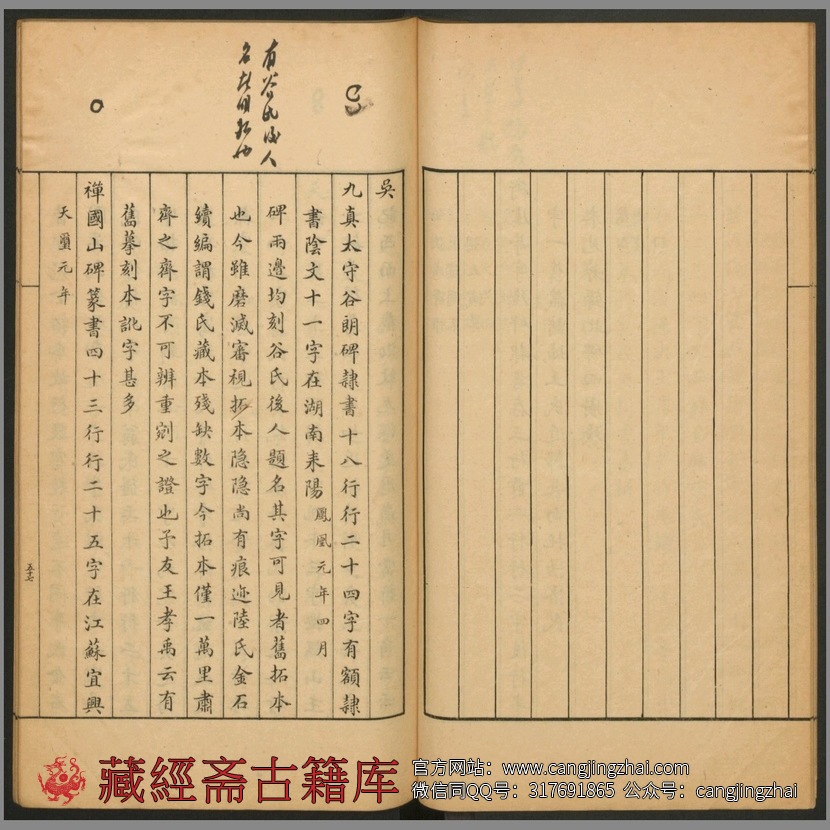 吳
九真太守谷朗碑隸書十八行行二十四字有額隸
書陰文十一字在湖南耒陽鳳凰元年四月
碑兩邊均刻谷氏後人題名其字可見者舊拓本
也今雖磨滅審視拓本隐隐尚有痕迹陸氏金石
續編謂錢氏藏本殘缺數字今拓本僅一萬里肅
齊之齊字不可辨重剜之證也予友王孝禹云有
舊摹刻本訛字甚多
禅國山碑篆書四十三行行二十五字在江蘇宜興
天璽元年
五十七
有谷氏後人
藏經斋古籍库
官方网站：www.cangjingzhai.com
微信同QQ号：317691865 公众号：cangjingzhai